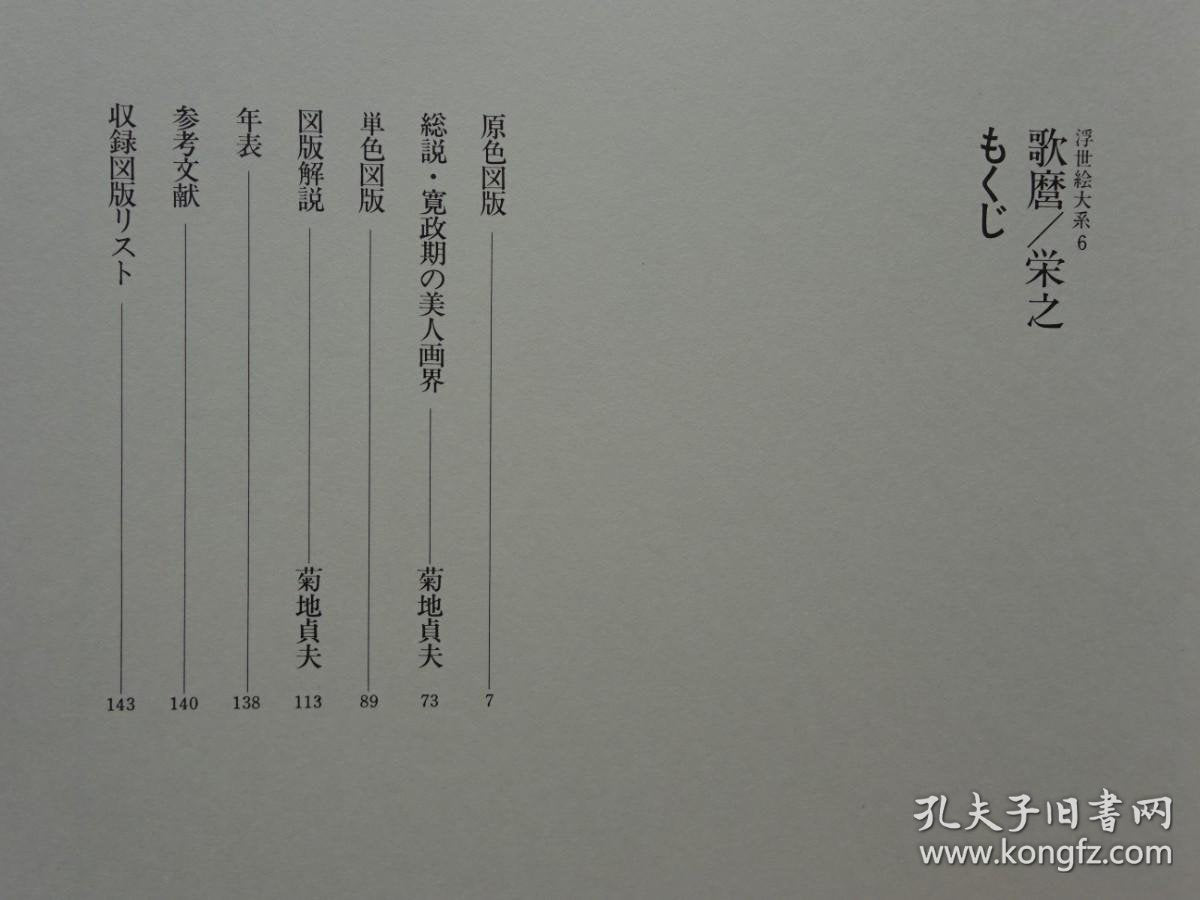 浮世絵大系6
歌麿／栄之
もくじ
原色図版 7
総説・寛政期の美人画界 菊地貞夫 73
単色図版 89
図版解説 菊地貞夫 113
年表 138
参考文献 140
収録図版リスト 143
孔夫子旧书网
www.kongfz.com